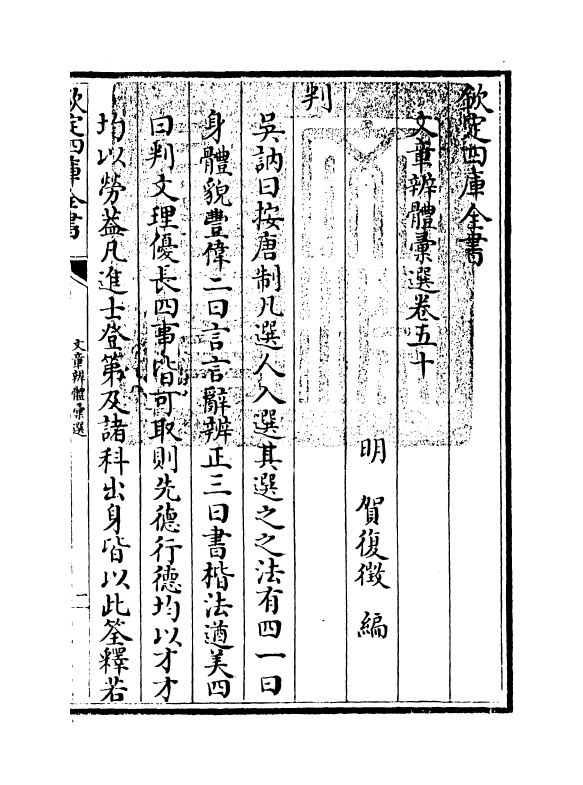 欽定四庫全書
文章辨體彚選卷五十
明 賀復徵 編
判
吳訥曰按唐制凡選人入選其選之之法有四一曰
身體貌豐偉二曰言言辭辨正三曰書楷法遒美四
曰判文理優長四事皆可取則先德行德均以才才
均以勞益凡進士登第及諸科出身皆以此筌釋若
欽定四庫全書
文章辨體彚選